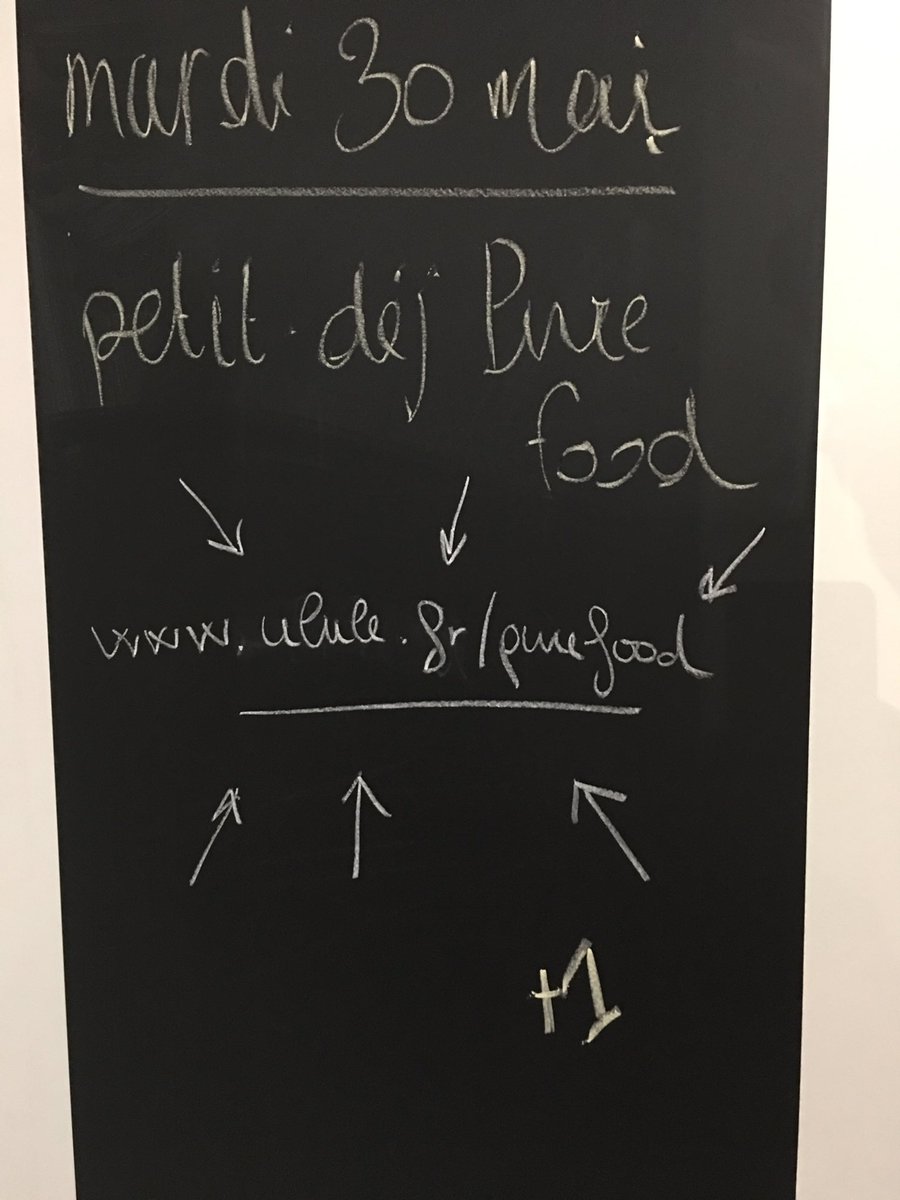 mardi 30 mai
petit déj Pure
food
www.ulule.fr/purefood
+1